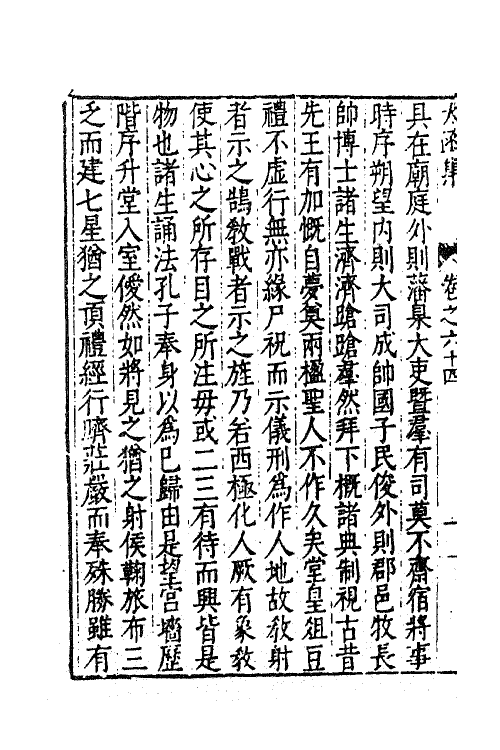 太函集 卷之六十四
具在廟庭外則藩臬大吏暨羣有司莫不齋宿將事
時序朔望内則大司成帥國子民俊外則郡邑牧長
帥博士諸生濟濟蹌蹌羣然拜下概諸典制視古昔
先王有加慨自夢奠兩楹聖人不作久矣堂皇俎豆
禮不虛行無亦緣尸祝而示儀刑爲作人地故敎射
者示之鵠敎戰者示之旌乃若西極化人厥有象敎
使其心之所存目之所注毋或二三有待而興皆是
物也諸生誦法孔子奉身以爲巳歸由是望宮牆歷
階序升堂入室僾然如將見之猶之射侯輈旅布三
乏而建七星猶之頂禮經行嚌莊嚴而奉殊勝雖有